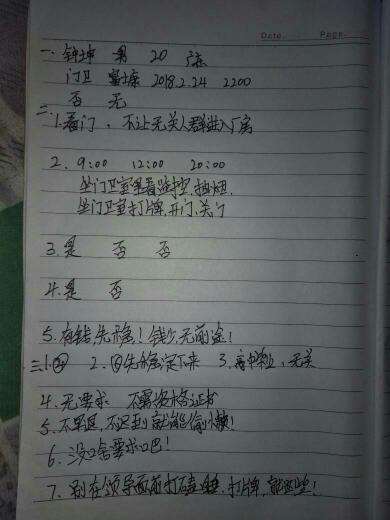 Date. Page.
一. 钟坤 男 20
门卫 富士康 2018.2.24 2200
否 无
二.
1.看门、不让无关人群进入厂房
2. 9:00 12:00 20:00
坐门卫室里看监控.抽烟
坐门卫室打牌.开门.关门
3.是 否 否
4.是 否
5.有钱,先稳!钱少,无前途!
三.1.④ 2.④先稳定下来 3.高中毕业、无关
4.无要求 不需资格证书
5.不早退 不迟到 就能偷懒!
6.没啥要求吧!
7.别在领导面前打瞌睡.打牌.